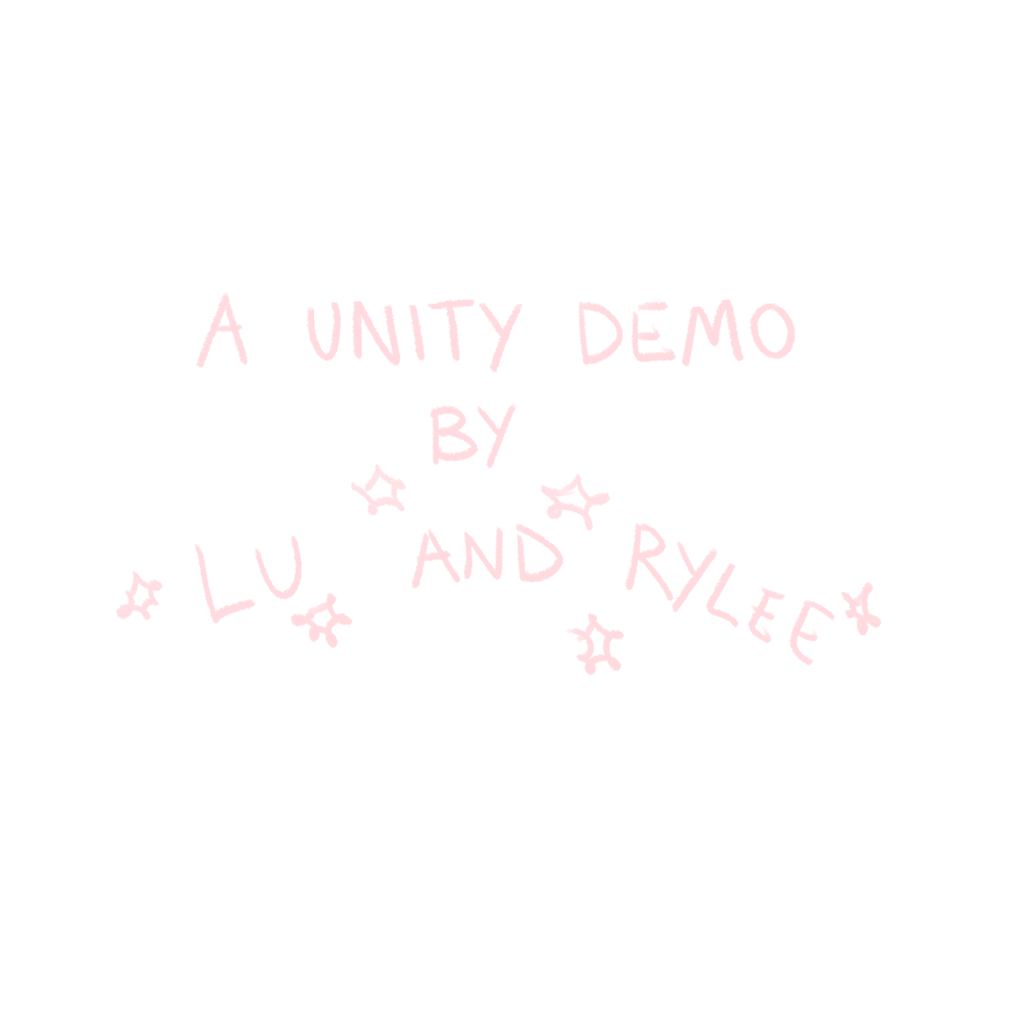 A UNITY DEMO
BY
LU AND RYLEE